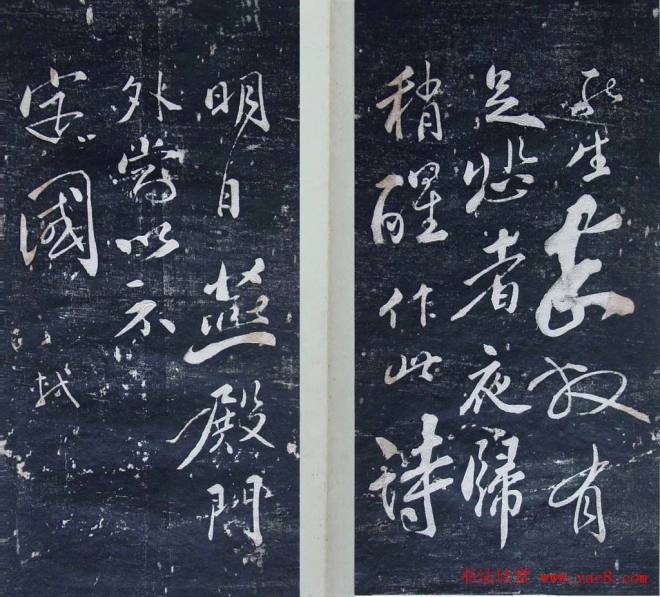 死生哀故有
足悲者夜歸
稍醒作此詩
明日燕殿門
外當以示
定國 軾
书法欣赏 www.yac8.com